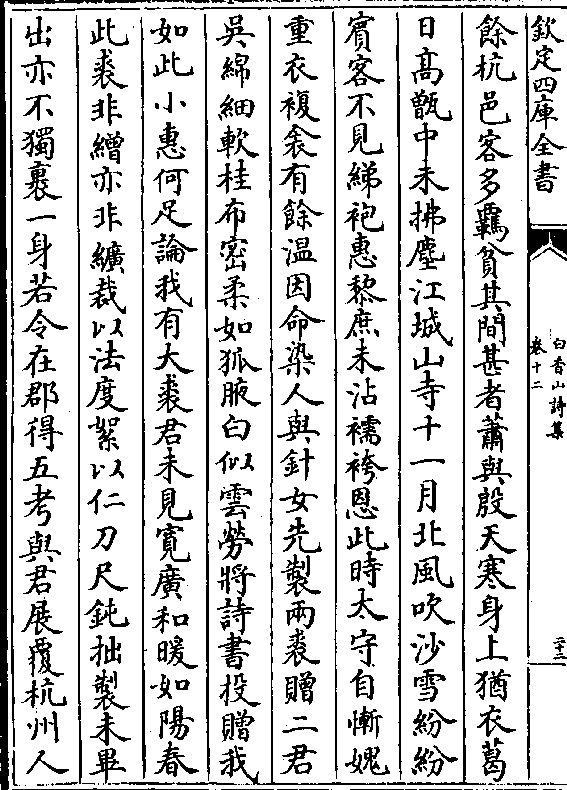 欽定四庫全書
白香山詩集
卷十二
二十二
餘杭邑客多羈貧其間甚者蕭與殷天寒身上猶衣葛
日髙甑中未拂塵江城山寺十一月北風吹沙雪紛紛
賓客不見綈袍惠黎庶未沾襦袴恩此時太守自慚媿
重衣複衾有餘温因命染人與針女先製兩裘贈二君
吳綿細軟桂布宻柔如狐腋白似雲勞將詩書投贈我
如此小惠何足論我有大裘君未見寛廣和暖如陽春
此裘非繒亦非纊裁以法度絮以仁刀尺鈍拙製未畢
出亦不獨裹一身若令在郡得五考與君展覆杭州人